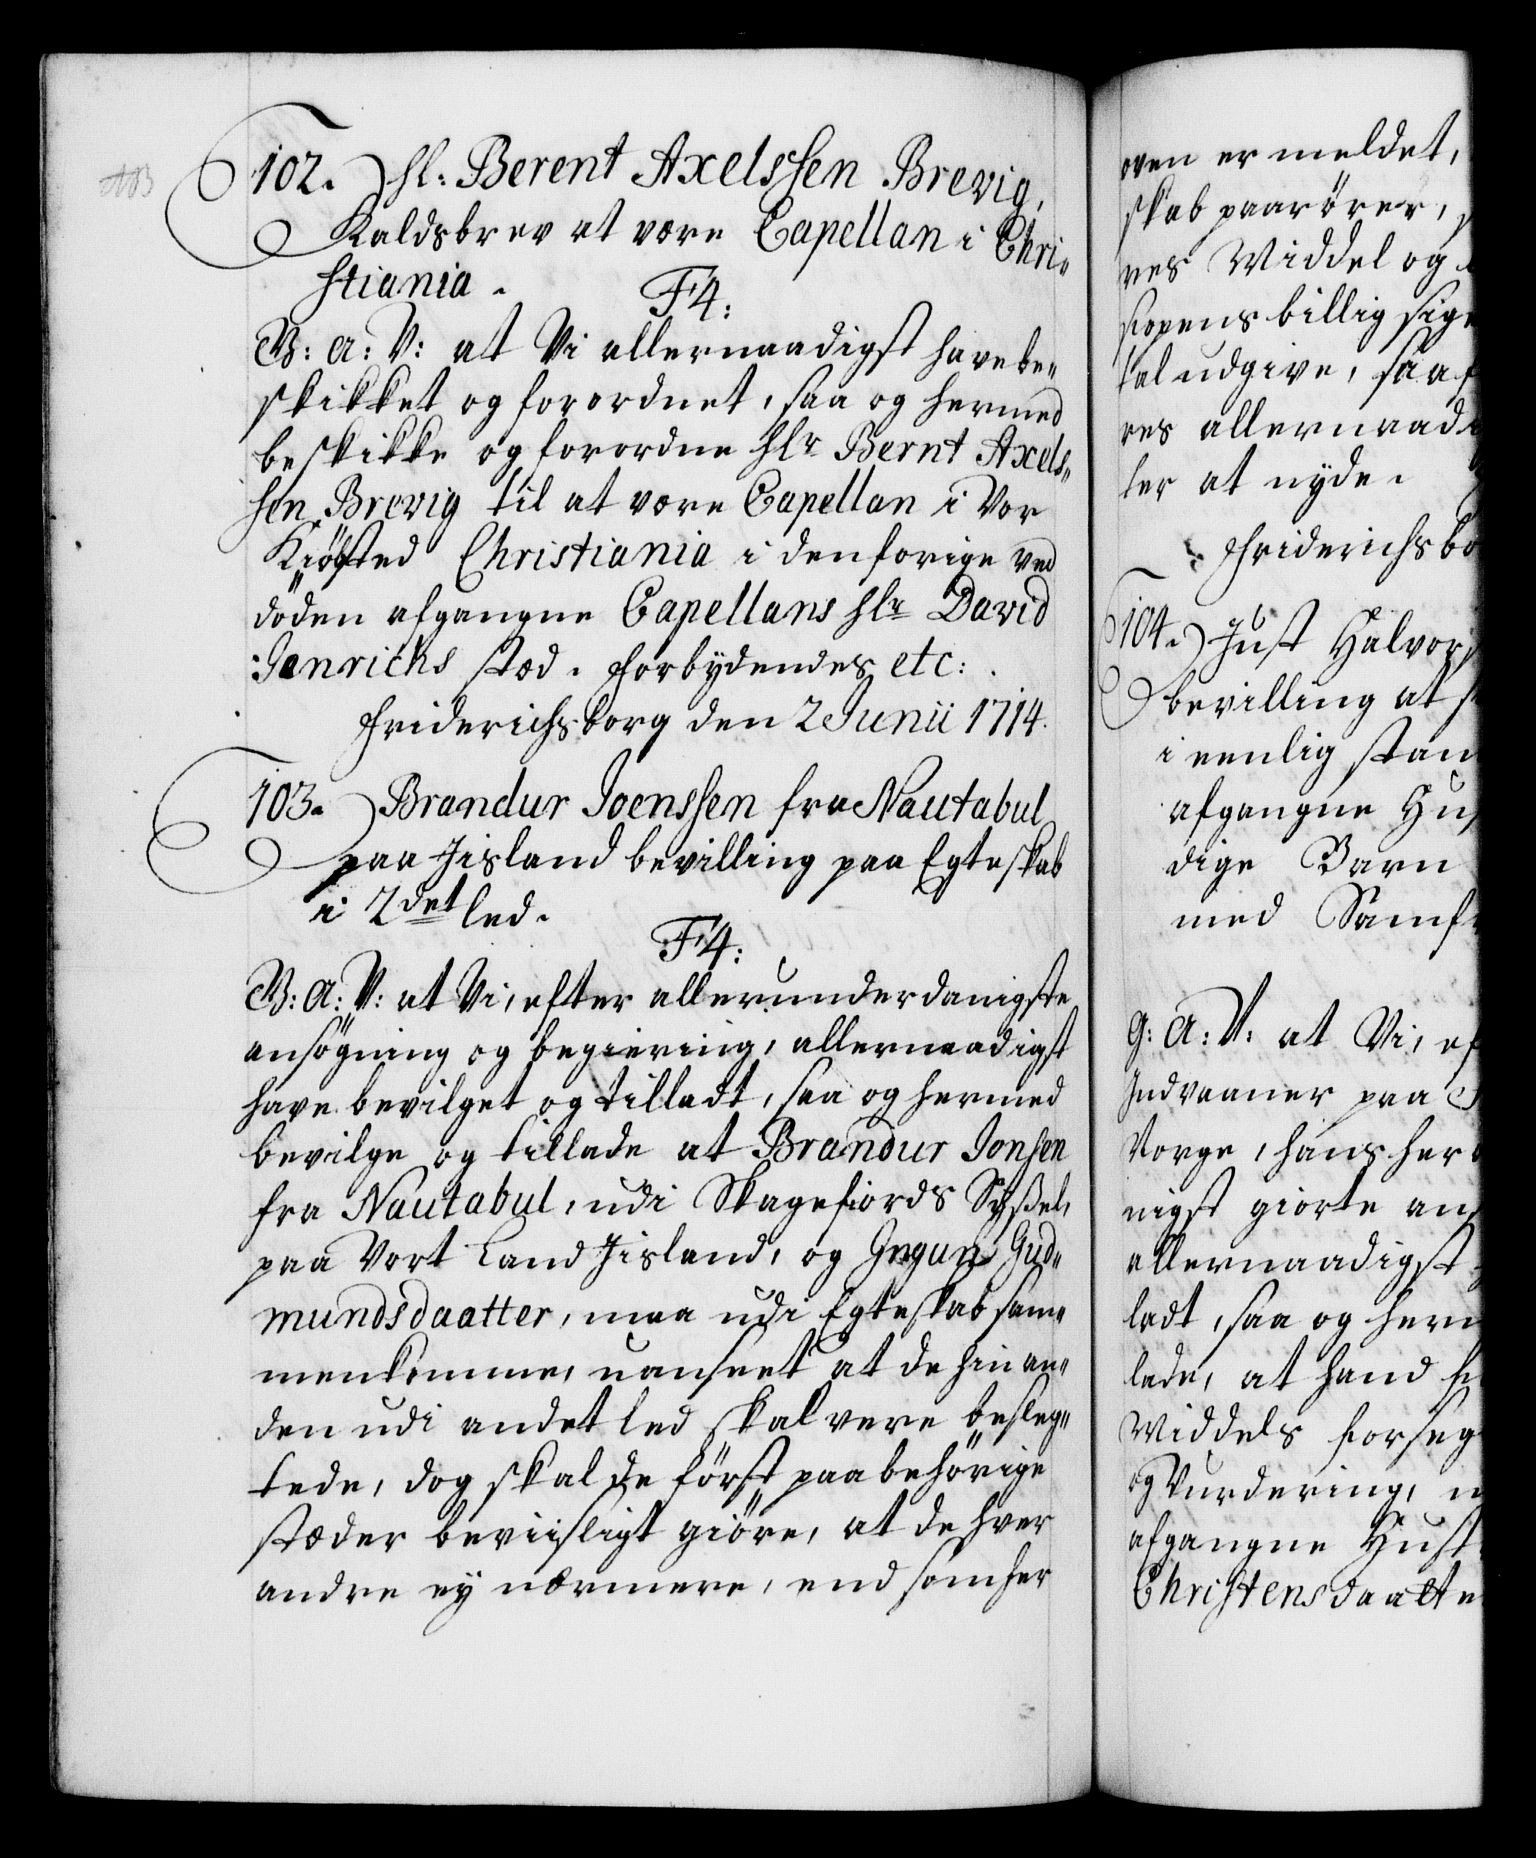 102. Hl: Berent Axelssen Brevig,
Kaldsbrev at være Capellan i Chri-
stiania.
F4:
G: A: V: at Vi allernaadigst have be-
skikket og forordnet, saa og hermed
beskikke og forordne Hlr Bernt Axels-
sen Brevig til at være Capellan i Vor
Kiöbsted Christiania i den forige ved
döden afgangne Capellans Hlr David
Jenrichs stæd. Forbydendes etc:
Friderichsborg den 2 Junii 1714.
103. Brandur Joenssen fra Nautabul
paa Jisland bevilling paa Egteskab
i 2det led.
F4:
G: A: V: at Vi, efter allerunderdanigste
ansögning og begiering, allernaadigst
have bevilget og tilladt, saa og hermed
bevilge og tillade at Brandur Jonsen
fra Nautabul, udi Skagefiords Syßel,
paa Vort Land Jisland, og Gngun Gud-
mundsdaatter, maa udi Egteskab sam-
menkomme, uanseet at de hinan-
den udi andet led skal være besleg-
tede, dog skal de först paa behörige
stæder beviisligt giöre, at de hver
andre ey nærmere, end som her
oven er meldet,
skab paarörer,
res Middel og
sopens billig
tal udgive, saa
res allernaad
ler at nyde.
Friderichsbo
104. Just Halvors
bevilling at
i eenlig stan
afgangne Hus
dige Barn
med Samf
G: A: V: at Vi, ef
Indvaaner paa
Norge, hans her
nigst giorte an
allernaadigst
ladt, saa og herm
lade, at hand
Middels forseg
og Vurdering,
afgangne Hust
Christensdaatte